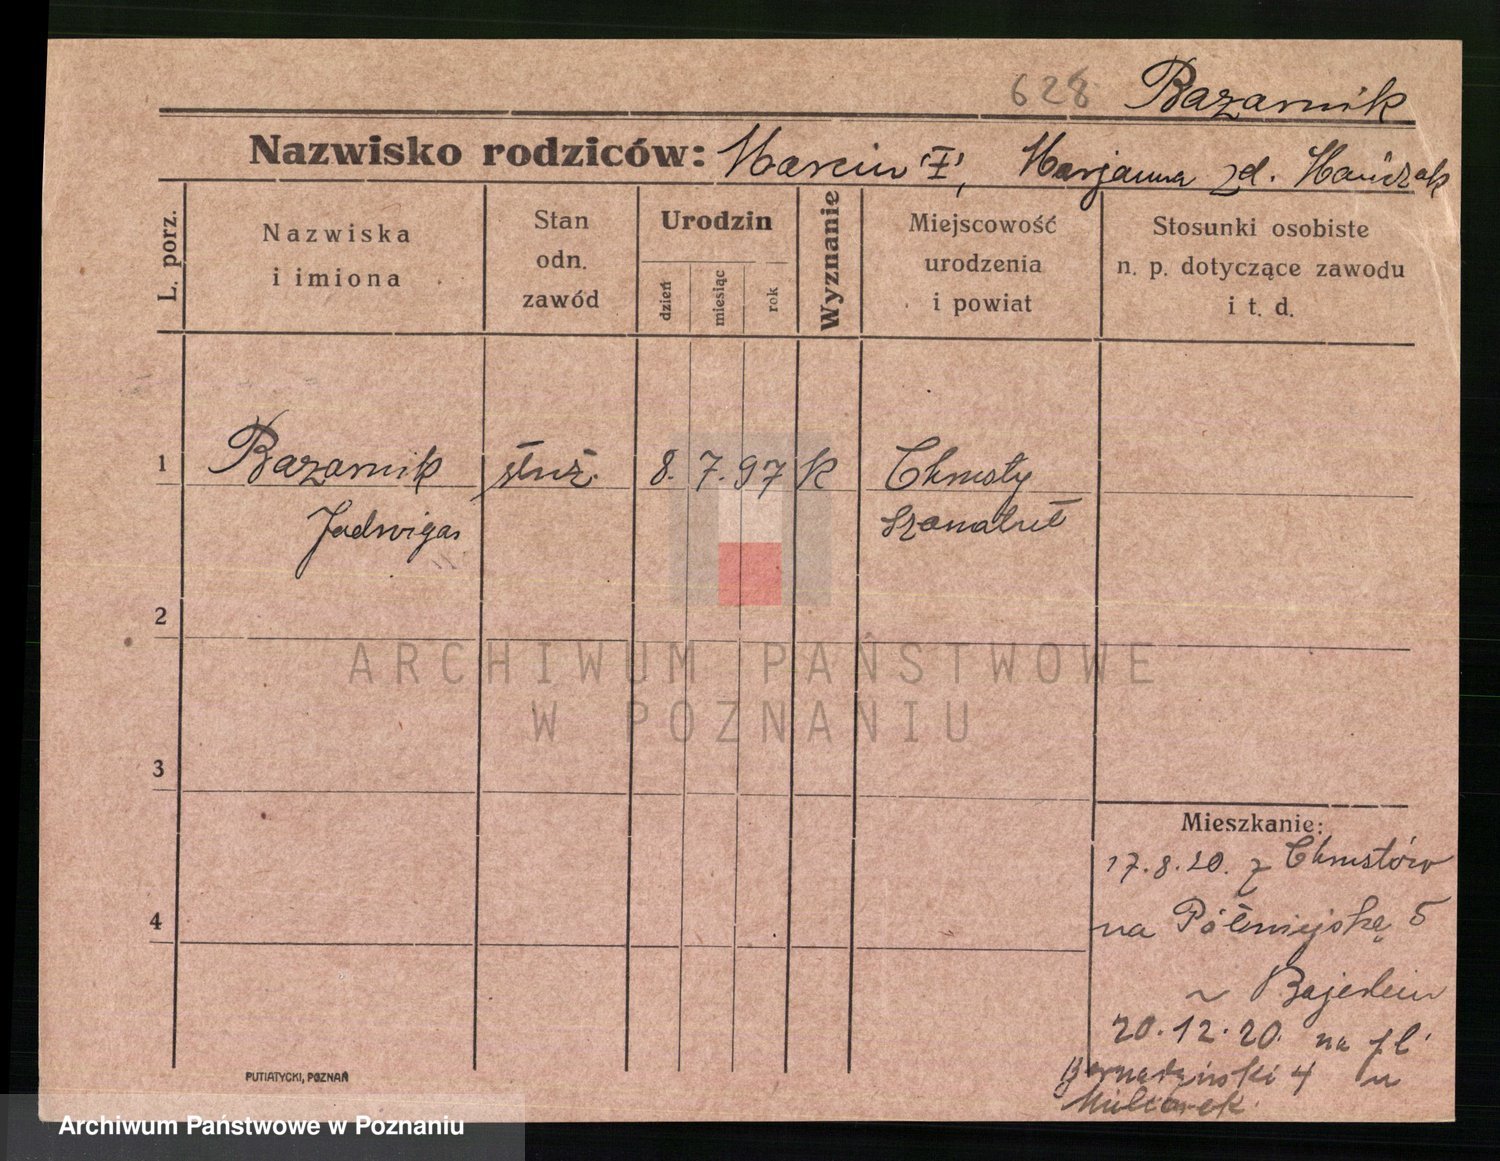 628 Bazarnik
Nazwisko rodziców: Marcin Marjanna zd. Hańczak
L. porz.
Nazwiska
i imiona
Stan
odn.
zawód
Urodzin
dzień
miesiąc
rok
Wyznanie
Miejscowość
urodzenia
i powiat
Stosunki osobiste
n. p. dotyczące zawodu
i t. d.
1 Bazarnik służ. 8. 7. 97 K
Jadwiga
2
ARCHIWUM PAŃSTWOWE
W POZNANIU
3
4
Mieszkanie:
17.8.20. z
na Półwiejską 5
20.12.20. na pl
Bernardyński 4 u
PUTIATYCKI, POZNAŃ
Archiwum Państwowe w Poznaniu